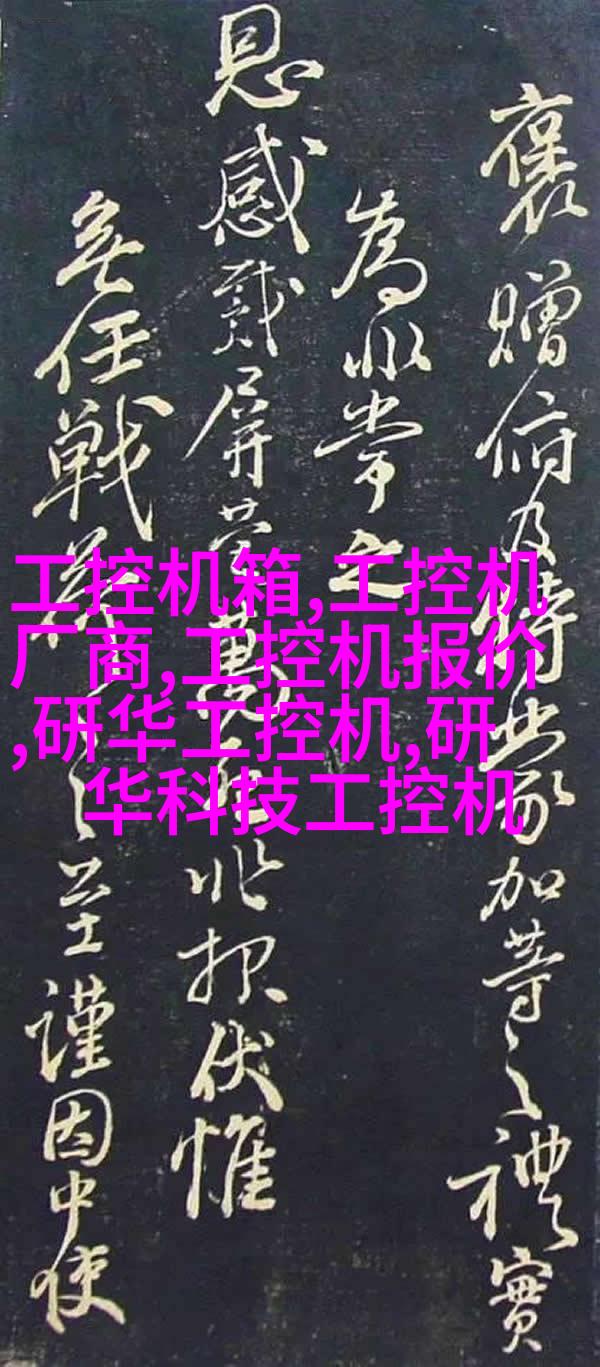 褒贈俯及特蒙加等之禮實
為非常之
恩感戴屏營萬非报伏惟
無任戰之至謹因中使
工控机箱,工控机
厂商,工控机报价
,研华工控机,研
华科技工控机